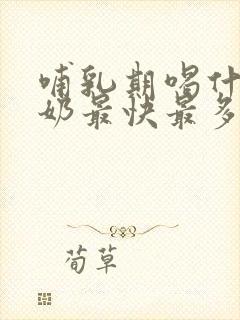 哺乳期喝什
奶最快最多
荀草